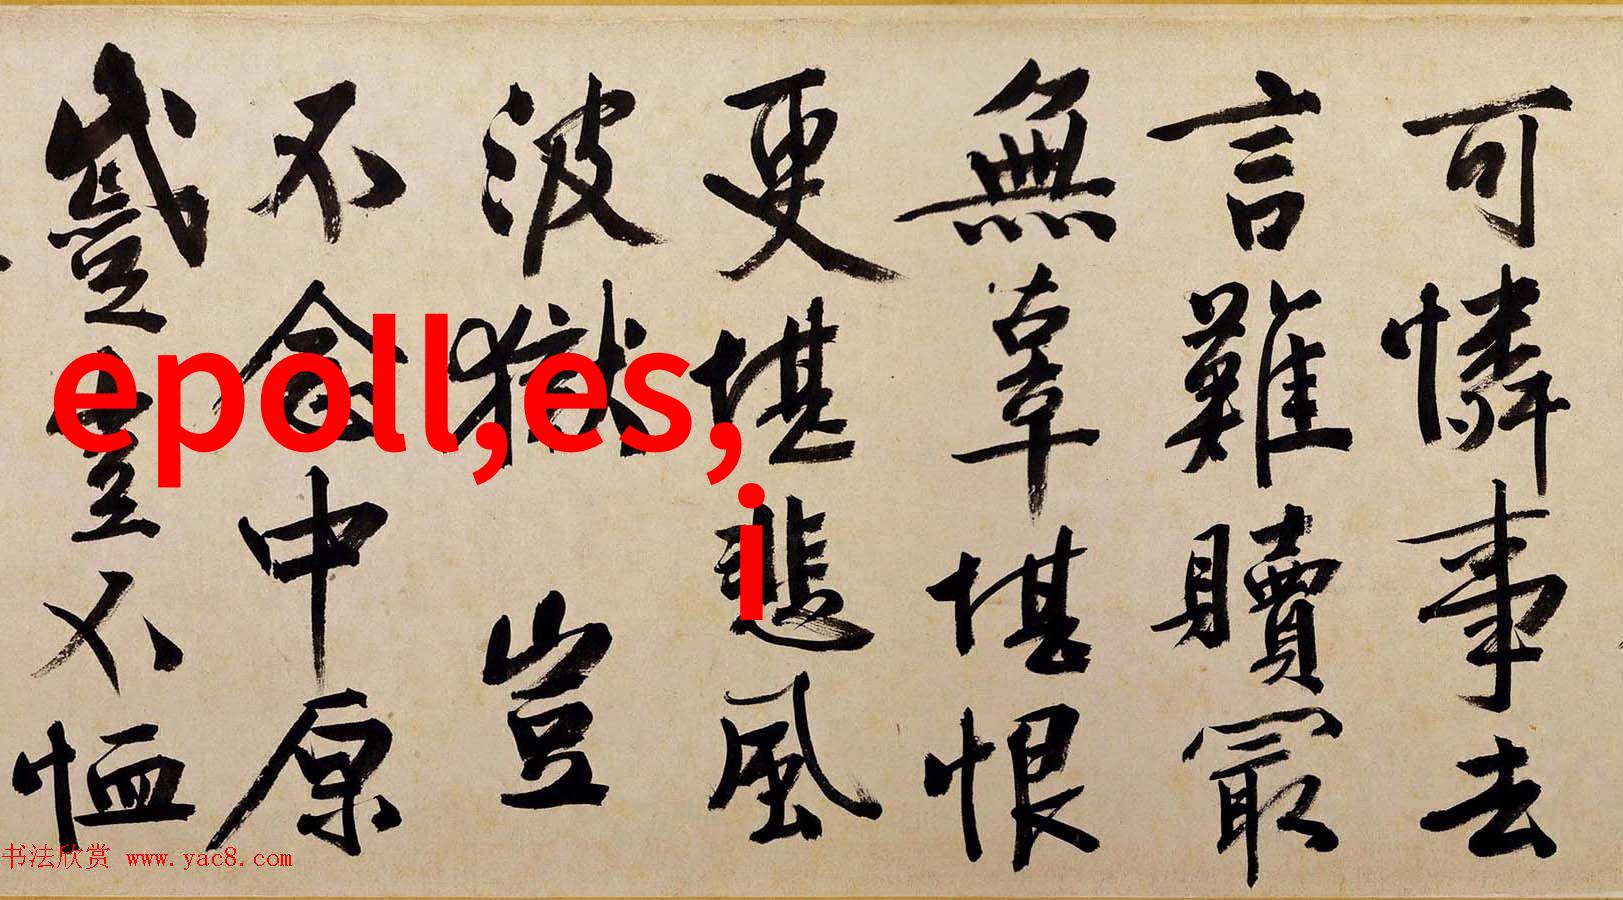 可憐事去
言難贖最
無辜堪恨
更堪悲風
波獄豈
不念中原
蹙豈不恤
epoll,es,
i
书法欣赏 www.yac8.com